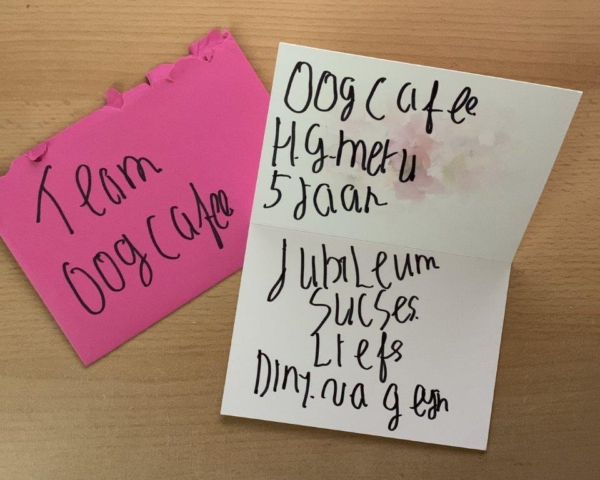 Team
Oogcafee
Oogcafee
H.G.met u
5 Jaar
Jubileum
Sucses.
Liefs
Diny.